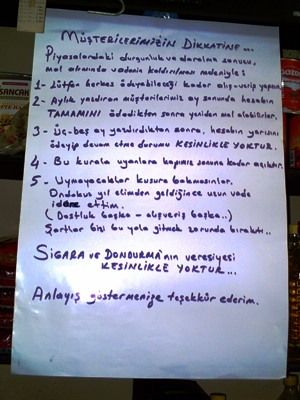 MÜŞTERİLERİMİZİN DİKKATİNE...
Piyasalardaki durgunluk ve daralma sonucu,
mal alımında vadenin kaldırılması nedeniyle;
1- Lütfen herkes ödeyebileceği kadar alış-veriş yapsın.
2- Aylık yazdıran müşterilerimiz ay sonunda hesabın
TAMAMINI ödedikten sonra yeniden mal alabilirler.
3- Üç-beş ay yazdırdıktan sonra, hesabın yarısını
ödeyip devam etme durumu KESİNLİKLE YOKTUR.
4- Bu kurala uyanlara kapımız sonuna kadar açıktır.
5- Uymayacaklar kusura bakmasınlar.
Ondokuz yıl elimden geldiğince uzun vade
idare ettim.
(Dostluk başka - alışveriş başka..)
Şartlar bizi bu yola gitmek zorunda bıraktı..
SİGARA VE DONDURMA'nın veresiyesi
KESİNLİKLE YOKTUR...
Anlayış göstermenize teşekkür ederim.
SANCAK